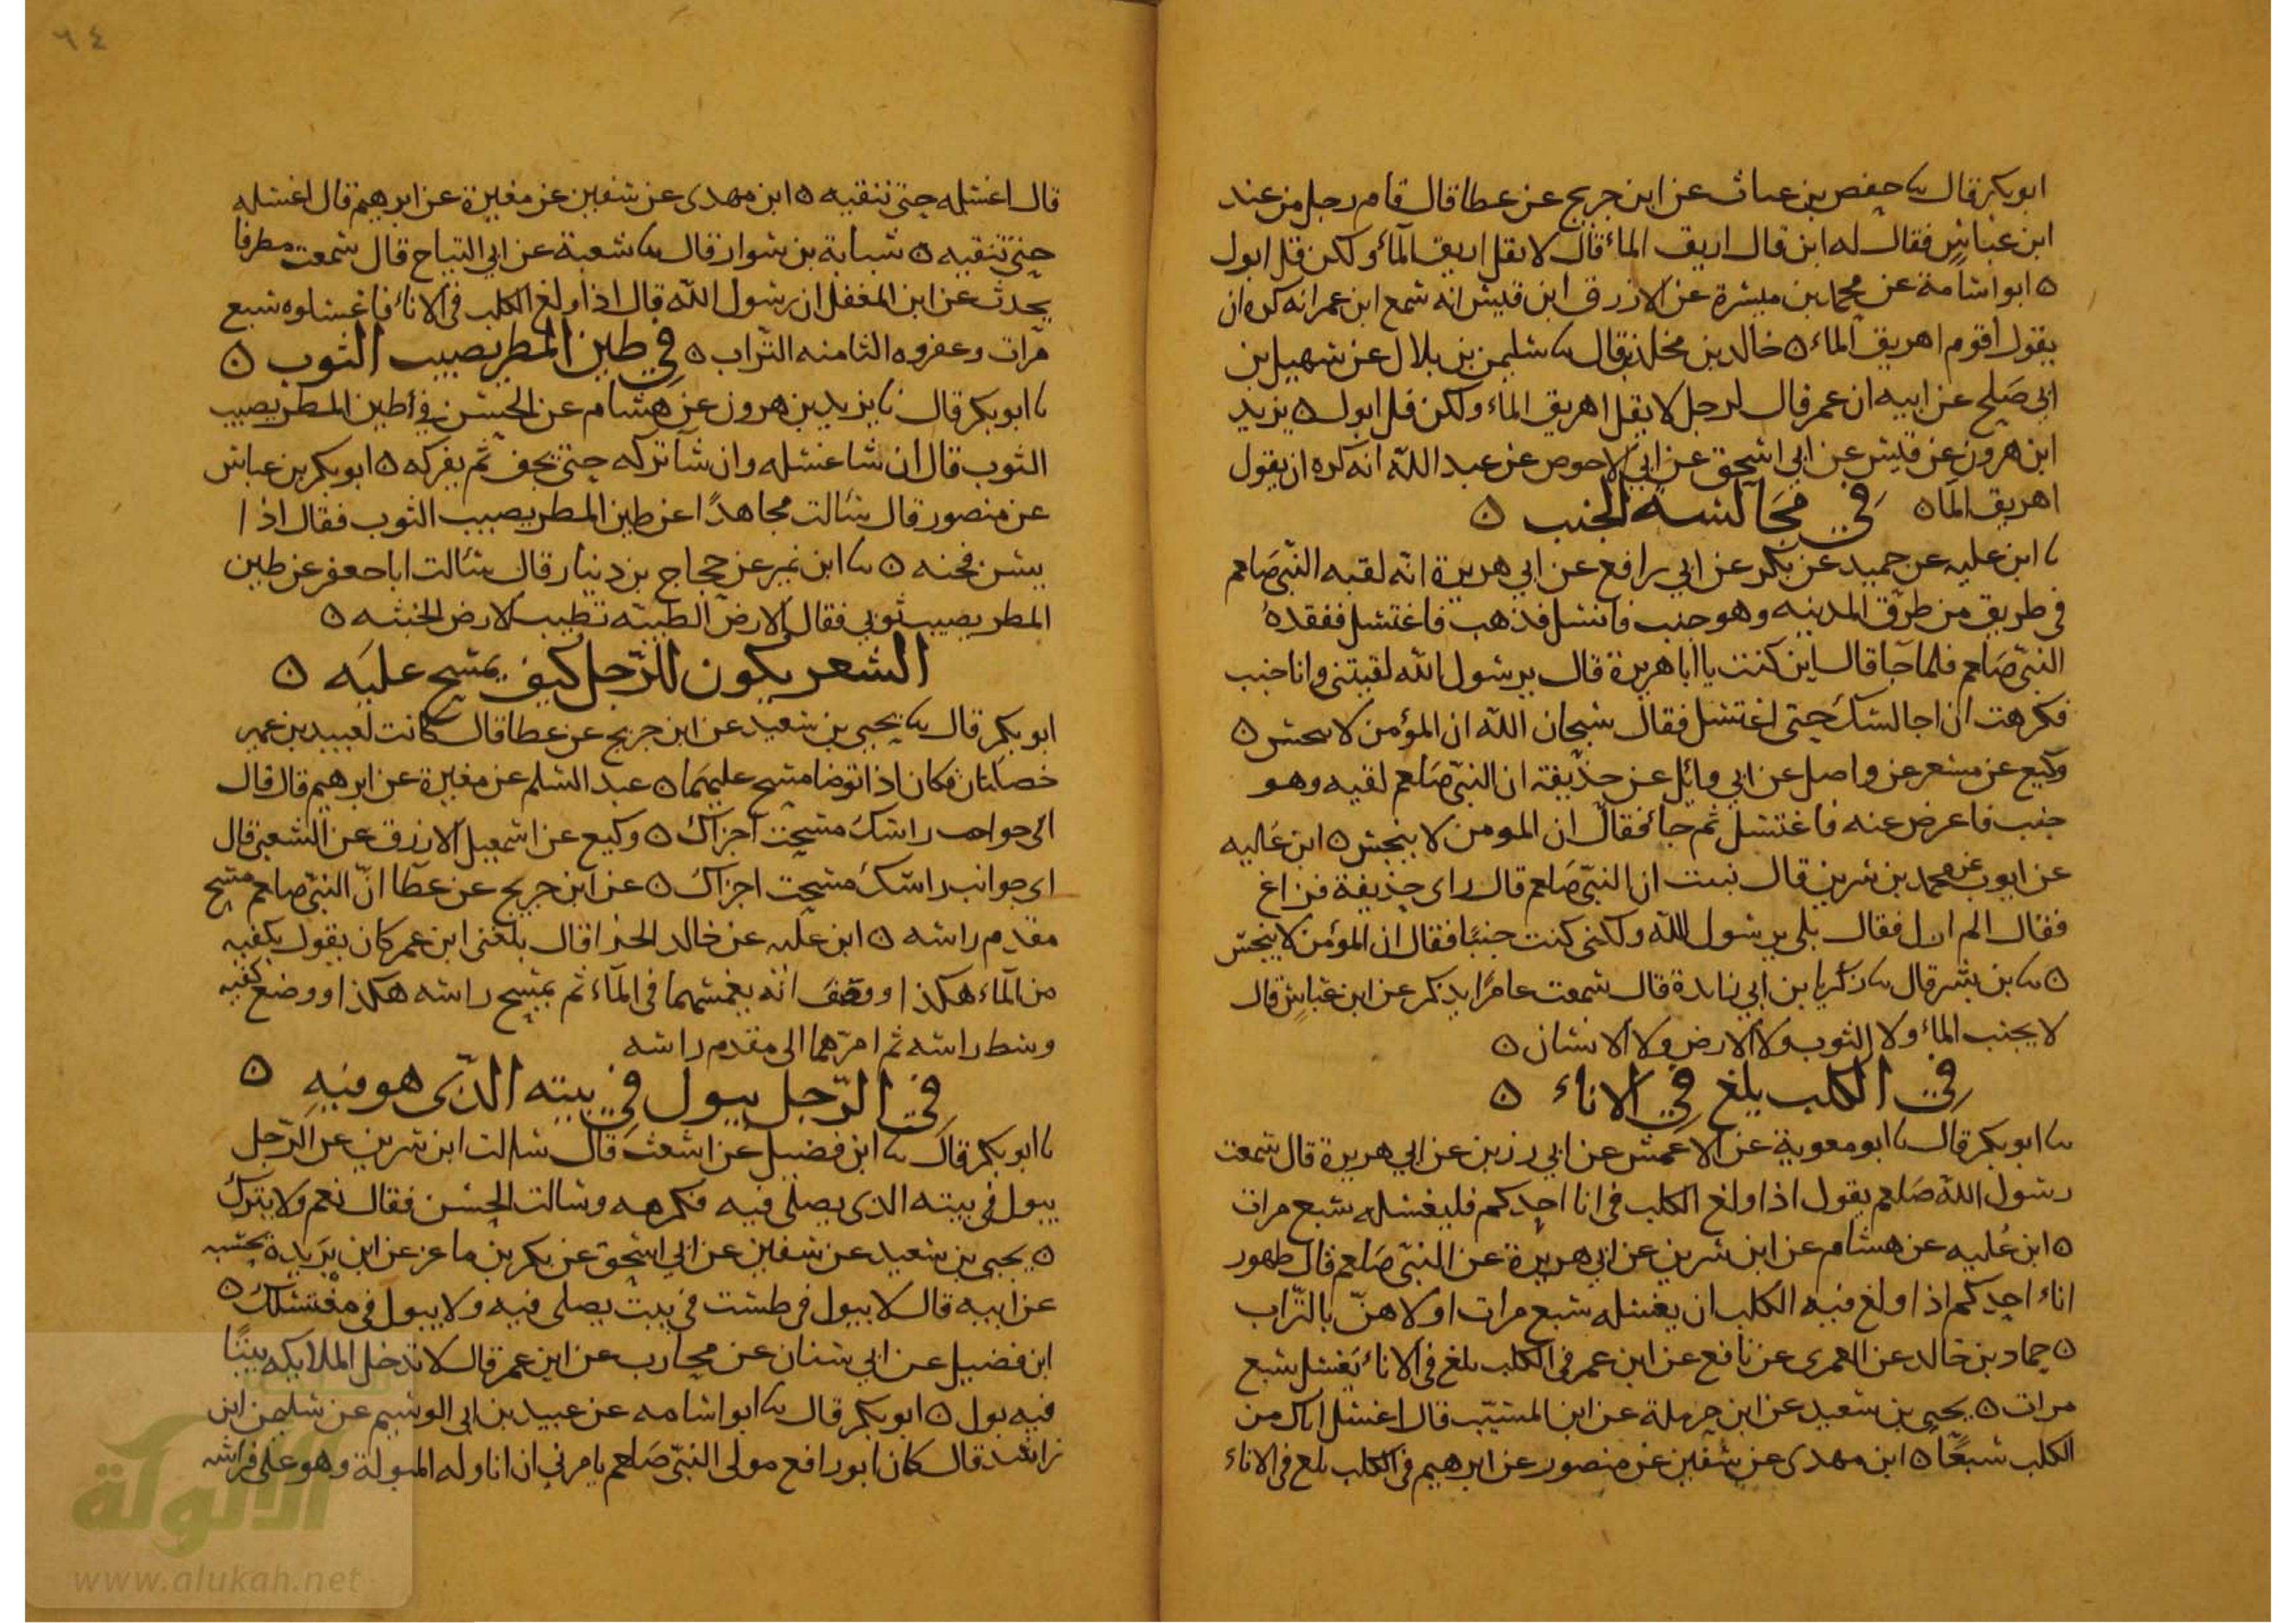 ابوبكر قال سا حفص بن غياث عن ابن جريج عن عطا قال قام رجل من عند
ابن عباس فقال له ابن قال اريق الماء قال لا تقل اريق الماء ولكن قل ابول
ه ابو اسامة عن محمد بن ميسرة عن الازرق ابن قيس انه سمع ابن عمر انه كره ان
يقول اقوم اهريق الماء ه خالد بن مخلد قال سا سليمن بن بلال عن سهيل بن
ابى صلح عن ابيه ان عمر قال لرجل لا تقل اهريق الماء ولكن قل ابول ه يزيد
ابن هرون عن قيس عن ابي اسحق عن ابي الاحوص عن عبد الله انه كره ان يقول
اهريق الما ه في مجالسه الجنب ه
سا ابن عليه عن حميد عن بكر عن ابي رافع عن ابي هريرة انه لقيه النبى صلعم
في طريق من طرق المدينه وهو جنب فانسل فذهب فاغتسل ففقده
النبى صلعم فلما جا قال اين كنت يا ابا هريرة قال يرسول الله لقيتنى وانا جنب
فكرهت ان اجالسك حتى اغتسل فقال سبحان الله ان المؤمن لا ينجس ه
وكيع عن مسعر عن واصل عن ابي وائل عن حذيفة ان النبى صلعم لقيه وهو
جنب فاعرض عنه فاغتسل ثم جاء فقال ان المومن لا ينجس ه ابن عليه
عن ايوب عن محمد بن سرين قال نبئت ان النبى صلعم قال راى حذيفة فراغ
فقال الم ارك فقال بلى يرسول الله ولكنى كنت جنبا فقال ان المؤمن لا ينجس
ه سا بن بشر قال سا زكريا بن ابي زايدة قال سمعت عامرا يذكر عن ابن عباس قال
لا يجنب الماء ولا الثوب ولا الارض ولا الانسان ه
في الكلب يلغ في الاناء ه
سا ابوبكر قال سا ابو معوية عن الاعمش عن ابي رزين عن ابي هريرة قال سمعت
رسول الله صلعم يقول اذا ولغ الكلب فى انا احدكم فليغسله سبع مرات
ه ابن عليه عن هشام عن ابن سرين عن ابي هريرة عن النبى صلعم قال طهور
اناء احدكم اذا ولغ فيه الكلب ان يغسله سبع مرات اولاهن بالتراب
ه حماد بن خالد عن العمرى عن نافع عن ابن عمر فى الكلب يلغ فى الاناء يغسل سبع
مرات ه يحيى بن سعيد عن ابن حرملة عن ابن المسيب قال اغسل اناك من
الكلب سبعا ه ابن مهدى عن سفين عن منصور عن ابرهيم فى الكلب يلغ فى الاناء
٦٤
قال اغسله حتى تنقيه ه ابن مهدى عن سفين عن مغيرة عن ابرهيم قال اغسله
حتى تنقيه ه شبابة بن سوار قال سا شعبة عن ابي التياح قال سمعت مطرفا
يحدث عن ابن المغفل ان رسول الله قال اذا ولغ الكلب فى الاناء فاغسلوه سبع
مرات وعفروه الثامنه التراب ه في طين المطر يصيب الثوب ه
سا ابوبكر قال سا يزيد بن هرون عن هشام عن الحسن في طين المطر يصيب
الثوب قال ان شا غسله وان شا تركه حتى يجف ثم يفركه ه ابوبكر بن عياش
عن منصور قال سئالت مجاهدا عن طين المطر يصيب الثوب فقال اذا
يبس فحته ه سا ابن نمير عن حجاج بن دينار قال سئالت ابا جعفر عن طين
المطر يصيب ثوبي فقال الارض الطيبة تطيب الارض الخبثه ه
الشعر يكون للرجل كيف يمسح عليه ه
ابوبكر قال سا يحيى بن سعيد عن ابن جريج عن عطا قال كانت لعبيد بن عمير
خصلتان فكان اذا توضا مسح عليهما ه عبد السلم عن مغيرة عن ابرهيم قال قال
اى جوانب راسك مسحت اجزاك ه وكيع عن اسمعيل الازرق عن الشعبى قال
اى جوانب راسك مسحت اجزاك ه عن ابن جريج عن عطا ان النبى صلعم مسح
مقدم راسه ه ابن عليه عن خالد الحذا قال بلغنى ابن عمر كان يقول بكفيه
من الماء هكذا ووصف انه يغمسهما فى الماء ثم يمسح راسه هكذا ووضع كفيه
وسط راسه ثم امرهما الى مقدم راسه
في الرجل يبول في بيته الذى هو فيه ه
سا ابوبكر قال سا ابن فضيل عن اشعث قال سالت ابن سرين عن الرجل
يبول في بيته الذى يصلى فيه فكرهه وسالت الحسن فقال نعم ولا يترك
ه يحيى بن سعيد عن سفين عن ابي اسحق عن بكر بن ماعز عن ابن بريدة يحسبه
عن ابيه قال لا يبول فى طست فى بيت يصلى فيه ولا يبول فى مغتسلك ه
ابن فضيل عن ابي سنان عن محارب عن ابن عمر قال لا تدخل الملايكه بيتا
فيه بول ه ابوبكر قال سا ابو اسامه عن عبيد بن ابى الوسيم عن سليمن ابن
راشد قال كان ابو رافع مولى النبى صلعم يامرني ان اناوله المبولة وهو على فراشه
الألوكة
www.alukah.net